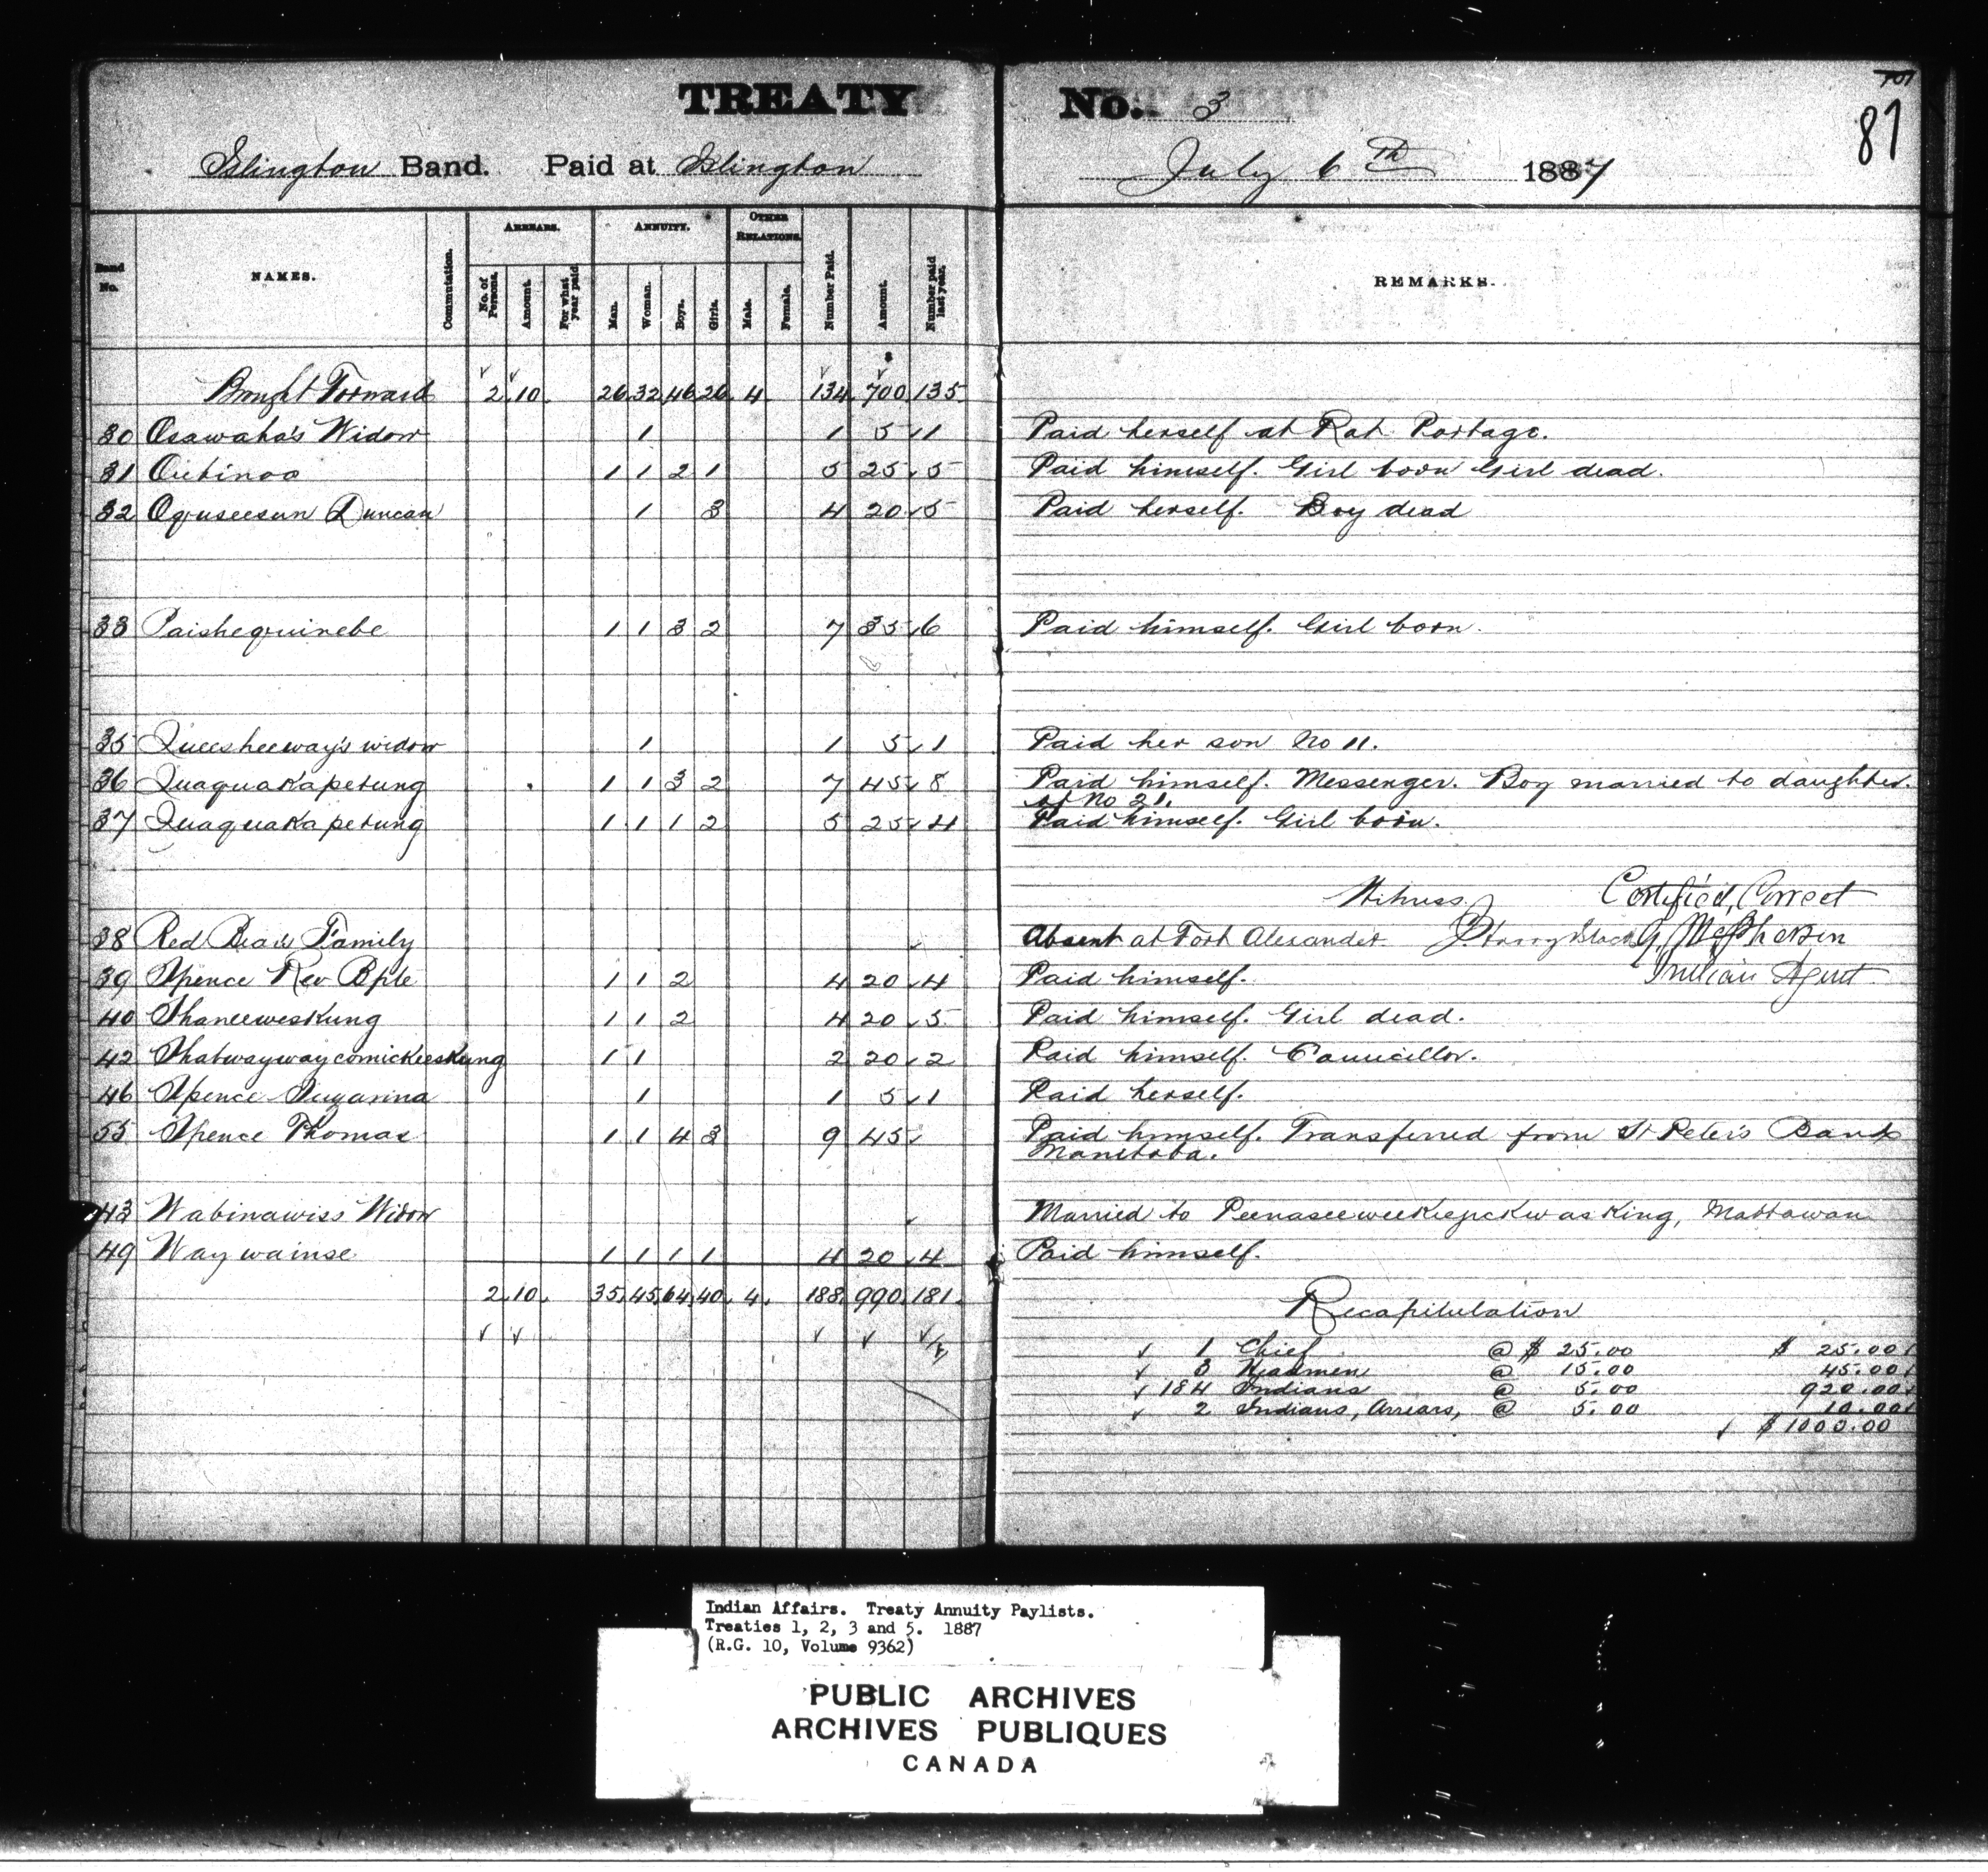 TREATY No. 3
107
87
Islington Band. Paid at Islington July 6th 1887
Band No. NAMES. Commutation. ARREARS. No. of Persons. Amount. For what year paid ANNUITY. Man. Woman. Boys. Girls. OTHER RELATIONS. Male. Female. Number Paid. Amount. Number paid last year. REMARKS.
$
Brought Forward 2 10 26 32 46 26 4 134 700 135
30 Osawaha's Widow 1 1 5 1 Paid herself at Rat Portage.
31 Outinoo 1 1 2 1 5 25 5 Paid himself. Girl born Girl dead.
32 Oguseesun Duncan 1 3 4 20 5 Paid herself. Boy dead
33 Paishequinebe 1 1 3 2 7 35 6 Paid himself. Girl born.
35 Queesheeway's widow 1 1 5 1 Paid her son No 11.
36 Quaquakapetung 1 1 3 2 7 45 8 Paid himself. Messenger. Boy married to daughter
of No 21.
37 Quaquakapetung 1 1 1 2 5 25 4 Paid himself. Girl born.
Witness Certified Correct
38 Red Bear's Family Absent at Fort Alexander G. McPherson
39 Spence Rev Bpte 1 1 2 4 20 4 Paid himself. Indian Agent
40 Shaneeweskung 1 1 2 4 20 5 Paid himself. Girl dead.
42 Shatwaywaycomickeeskung 1 1 2 20 2 Paid himself. Councillor.
46 Spence Sugarina 1 1 5 1 Paid herself.
55 Spence Thomas 1 1 4 3 9 45 Paid himself. Transferred from St Peter's Band
Manitoba.
43 Wabinawiss Widow Married to Peenaseeweekejickwasking, Mattawan
49 Waywainse 1 1 1 1 4 20 4 Paid himself.
2 10 35 45 64 40 4 188 990 181
Recapitulation
1 Chief @ $ 25.00 $ 25.00
3 Headmen @ 15.00 45.00
184 Indians @ 5.00 920.00
2 Indians, Arrears, @ 5.00 10.00
$ 1000.00
Indian Affairs. Treaty Annuity Paylists.
Treaties 1, 2, 3 and 5. 1887
(R.G. 10, Volume 9362)
PUBLIC ARCHIVES
ARCHIVES PUBLIQUES
CANADA